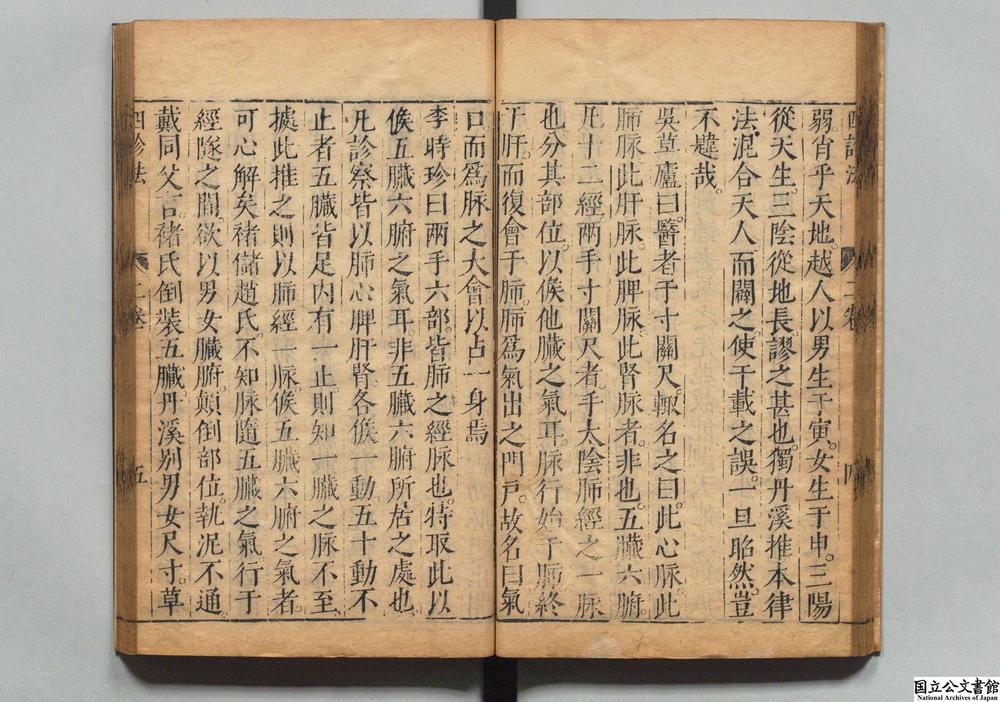 弱肖乎天地越人以男生于寅女生于申三陽
從天生三陰從地長謬之甚也獨丹溪推本律
法泥合天人而闢之使千載之誤一旦昭然豈
不韙哉
吳草廬曰醫者于寸關尺輙名之曰此心脉此
肺脉此肝脉此脾脉此腎脉者非也五臟六腑
凡十二經兩手寸關尺者手太陰肺經之一脉
也分其部位以候他臟之氣耳脉行始于肺終
于肝而復會于肺肺為氣出之門戸故名曰氣
口而為脉之大會以占一身焉
李時珍曰兩手六部皆肺之經脉也特取此以
候五臟六腑之氣耳非五臟六腑所居之處也
凡診察皆以肺心脾肝腎各候一動五十動不
止者五臟皆足内有一止則知一臟之脉不至
據此推之則以肺經一脉候五臟六腑之氣者
可心解矣褚儲趙氏不知脉隨五臟之氣行于
經隧之間欲以男女臟腑顛倒部位執泥不通
戴同父言褚氏倒裝五臟丹溪別男女尺寸草
四診法 二卷 五
国立公文書館
National Archives of Japan